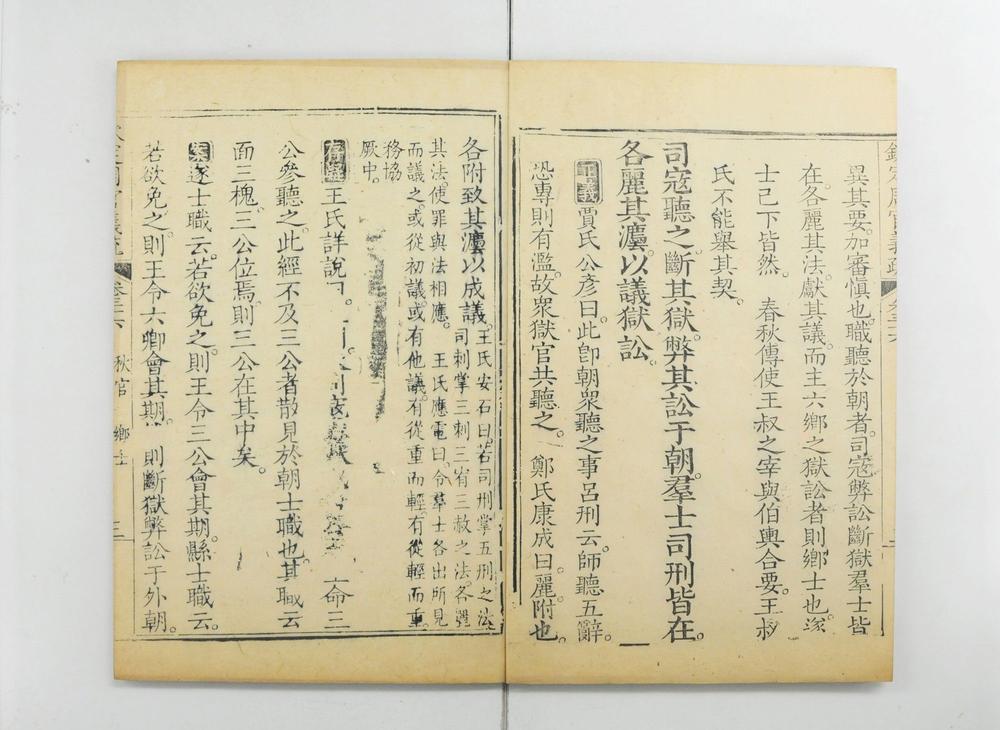 欽定周官義疏
異其要。加審慎也。職聽於朝者。司寇弊訟斷獄。羣士皆
在。各麗其法。獻其議。而主六鄉之獄訟者則鄉士也。遂
士已下皆然。 春秋傳使王叔之宰與伯輿合要。王叔
氏不能舉其契。
司寇聽之。斷其獄。弊其訟于朝。羣士司刑皆在。
各麗其灋。以議獄訟。
正義賈氏公彥曰。此卽朝衆聽之事。呂刑云。師聽五辭。
恐專則有濫。故衆獄官共聽之。 鄭氏康成曰。麗附也。
各附致其灋以成議。王氏安石曰。若司刑掌五刑之法
司刺掌三刺三宥三赦之法。各麗
其法。使罪與法相應。 王氏應電曰。令羣士各出所見
而議之。或從初議。或有他議。有從重而輕。有從輕而重。
務協
厥中。
存疑王氏詳說 命三
公參聽之。此經不及三公者。散見於朝士職也。其職云
面三槐。三公位焉。則三公在其中矣。
案遂士職云。若欲免之。則王令三公會其期。縣士職云。
若欲免之。則王令六卿會其期。 則斷獄弊訟于外朝。
秋官 鄉士 三